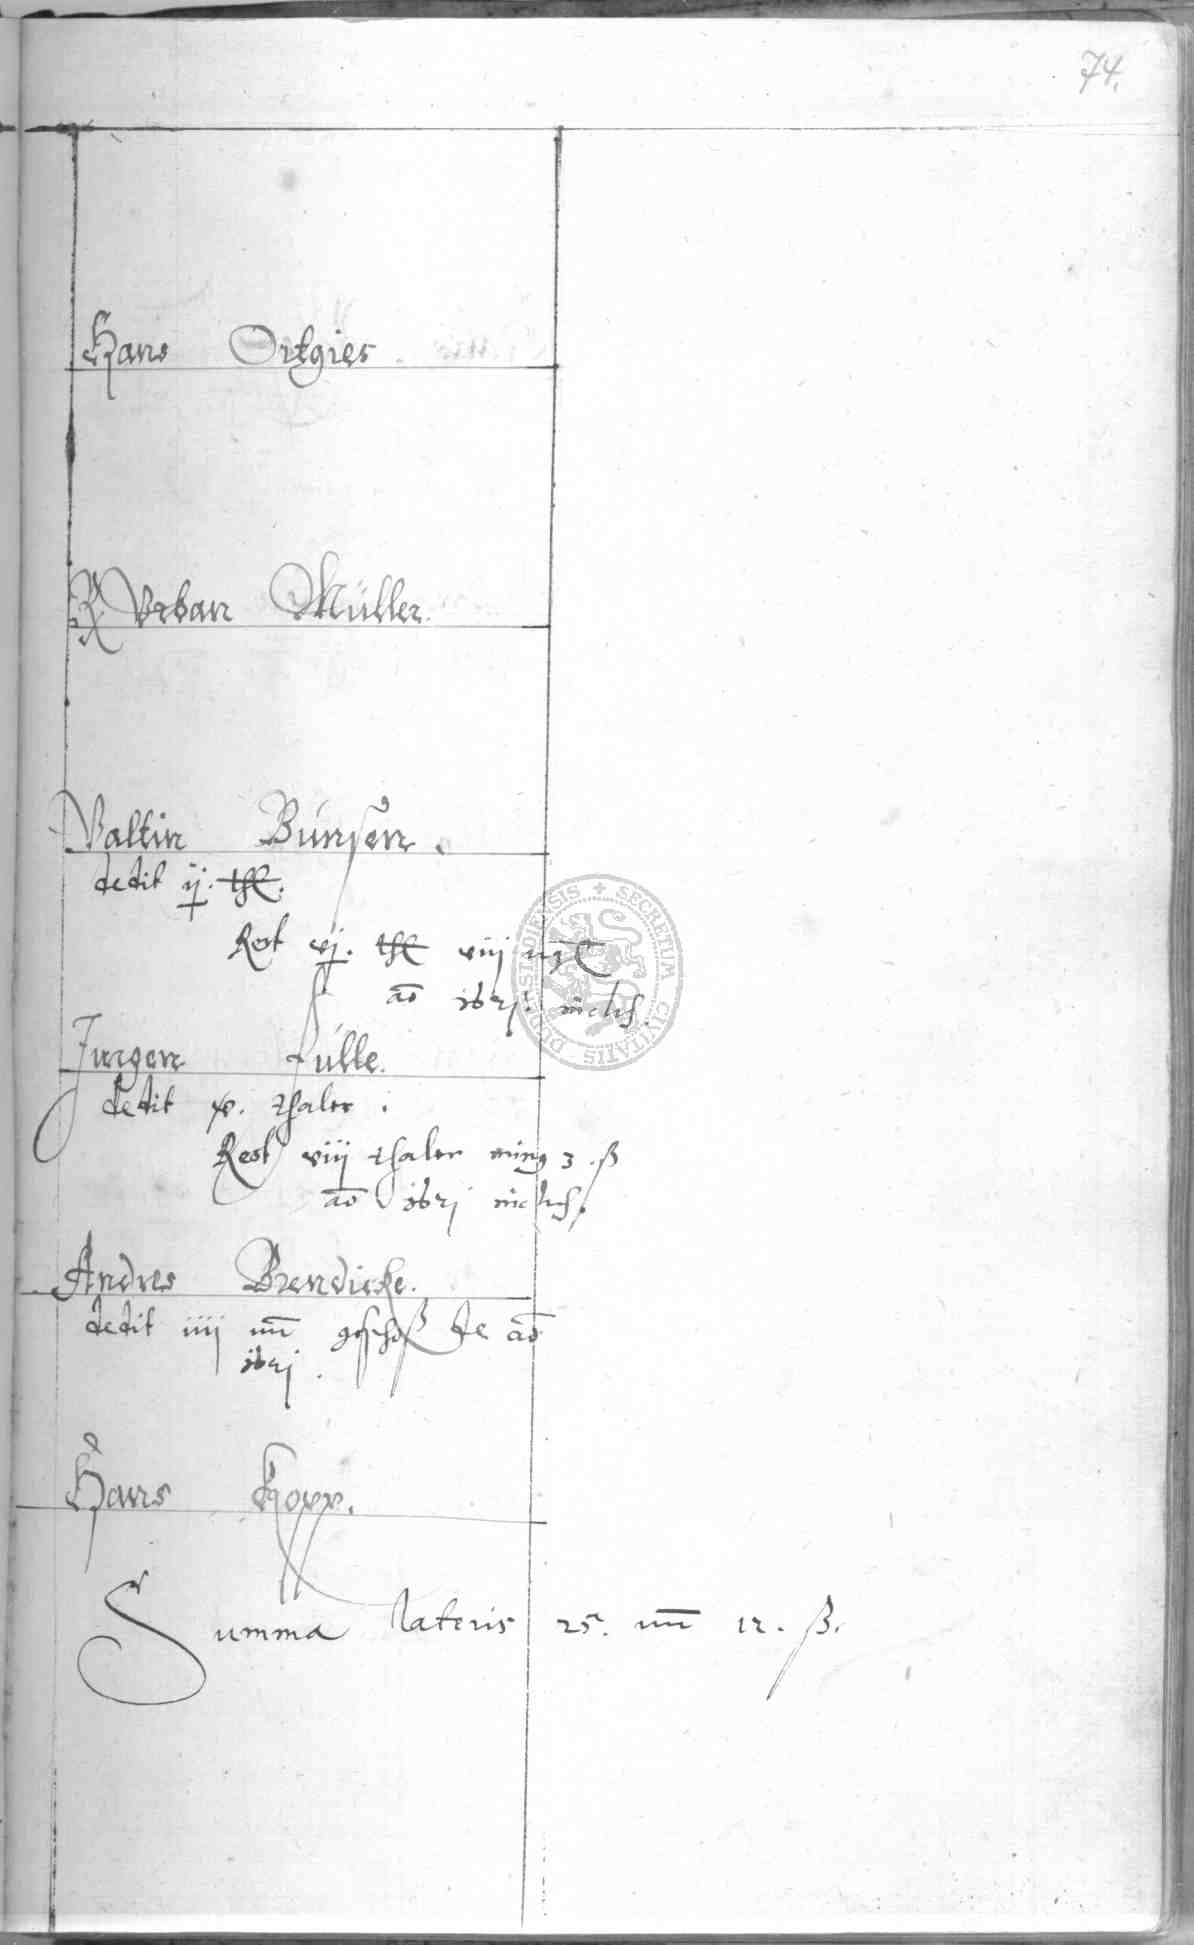 74.
Hans Ortgies
R Vrban Müller.
Valtin Bunsen.
dedit ij. thl.
Rest vj. thl viij
ao 1621. inclus.
Jurgen Fulle.
dedit x. thaler.
Rest viij thaler min9 3. ß
ao 1621 inclus.
Andres Bendicke.
dedit iiij mr geschoß de ao
1621.
Hans Kopp.
Summa lateris 25. mr 12. ß.
DUDERSTADIENSIS + SECRETUM CIVITATIS